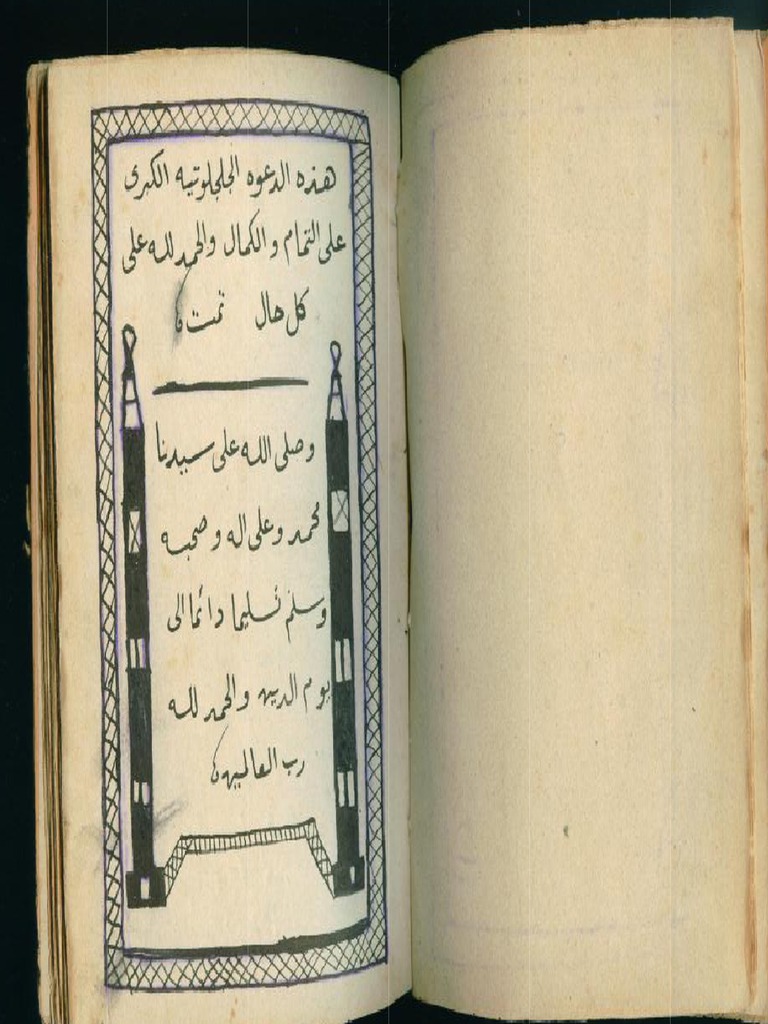 هذه الدعوه الجلجلوتيه الكبرى
على التمام والكمال والحمد لله على
كل حال تمت
وصلى الله على سيدنا
محمد وعلى اله وصحبه
وسلم تسليما دائما الى
يوم الدين والحمد لله
رب العالمين